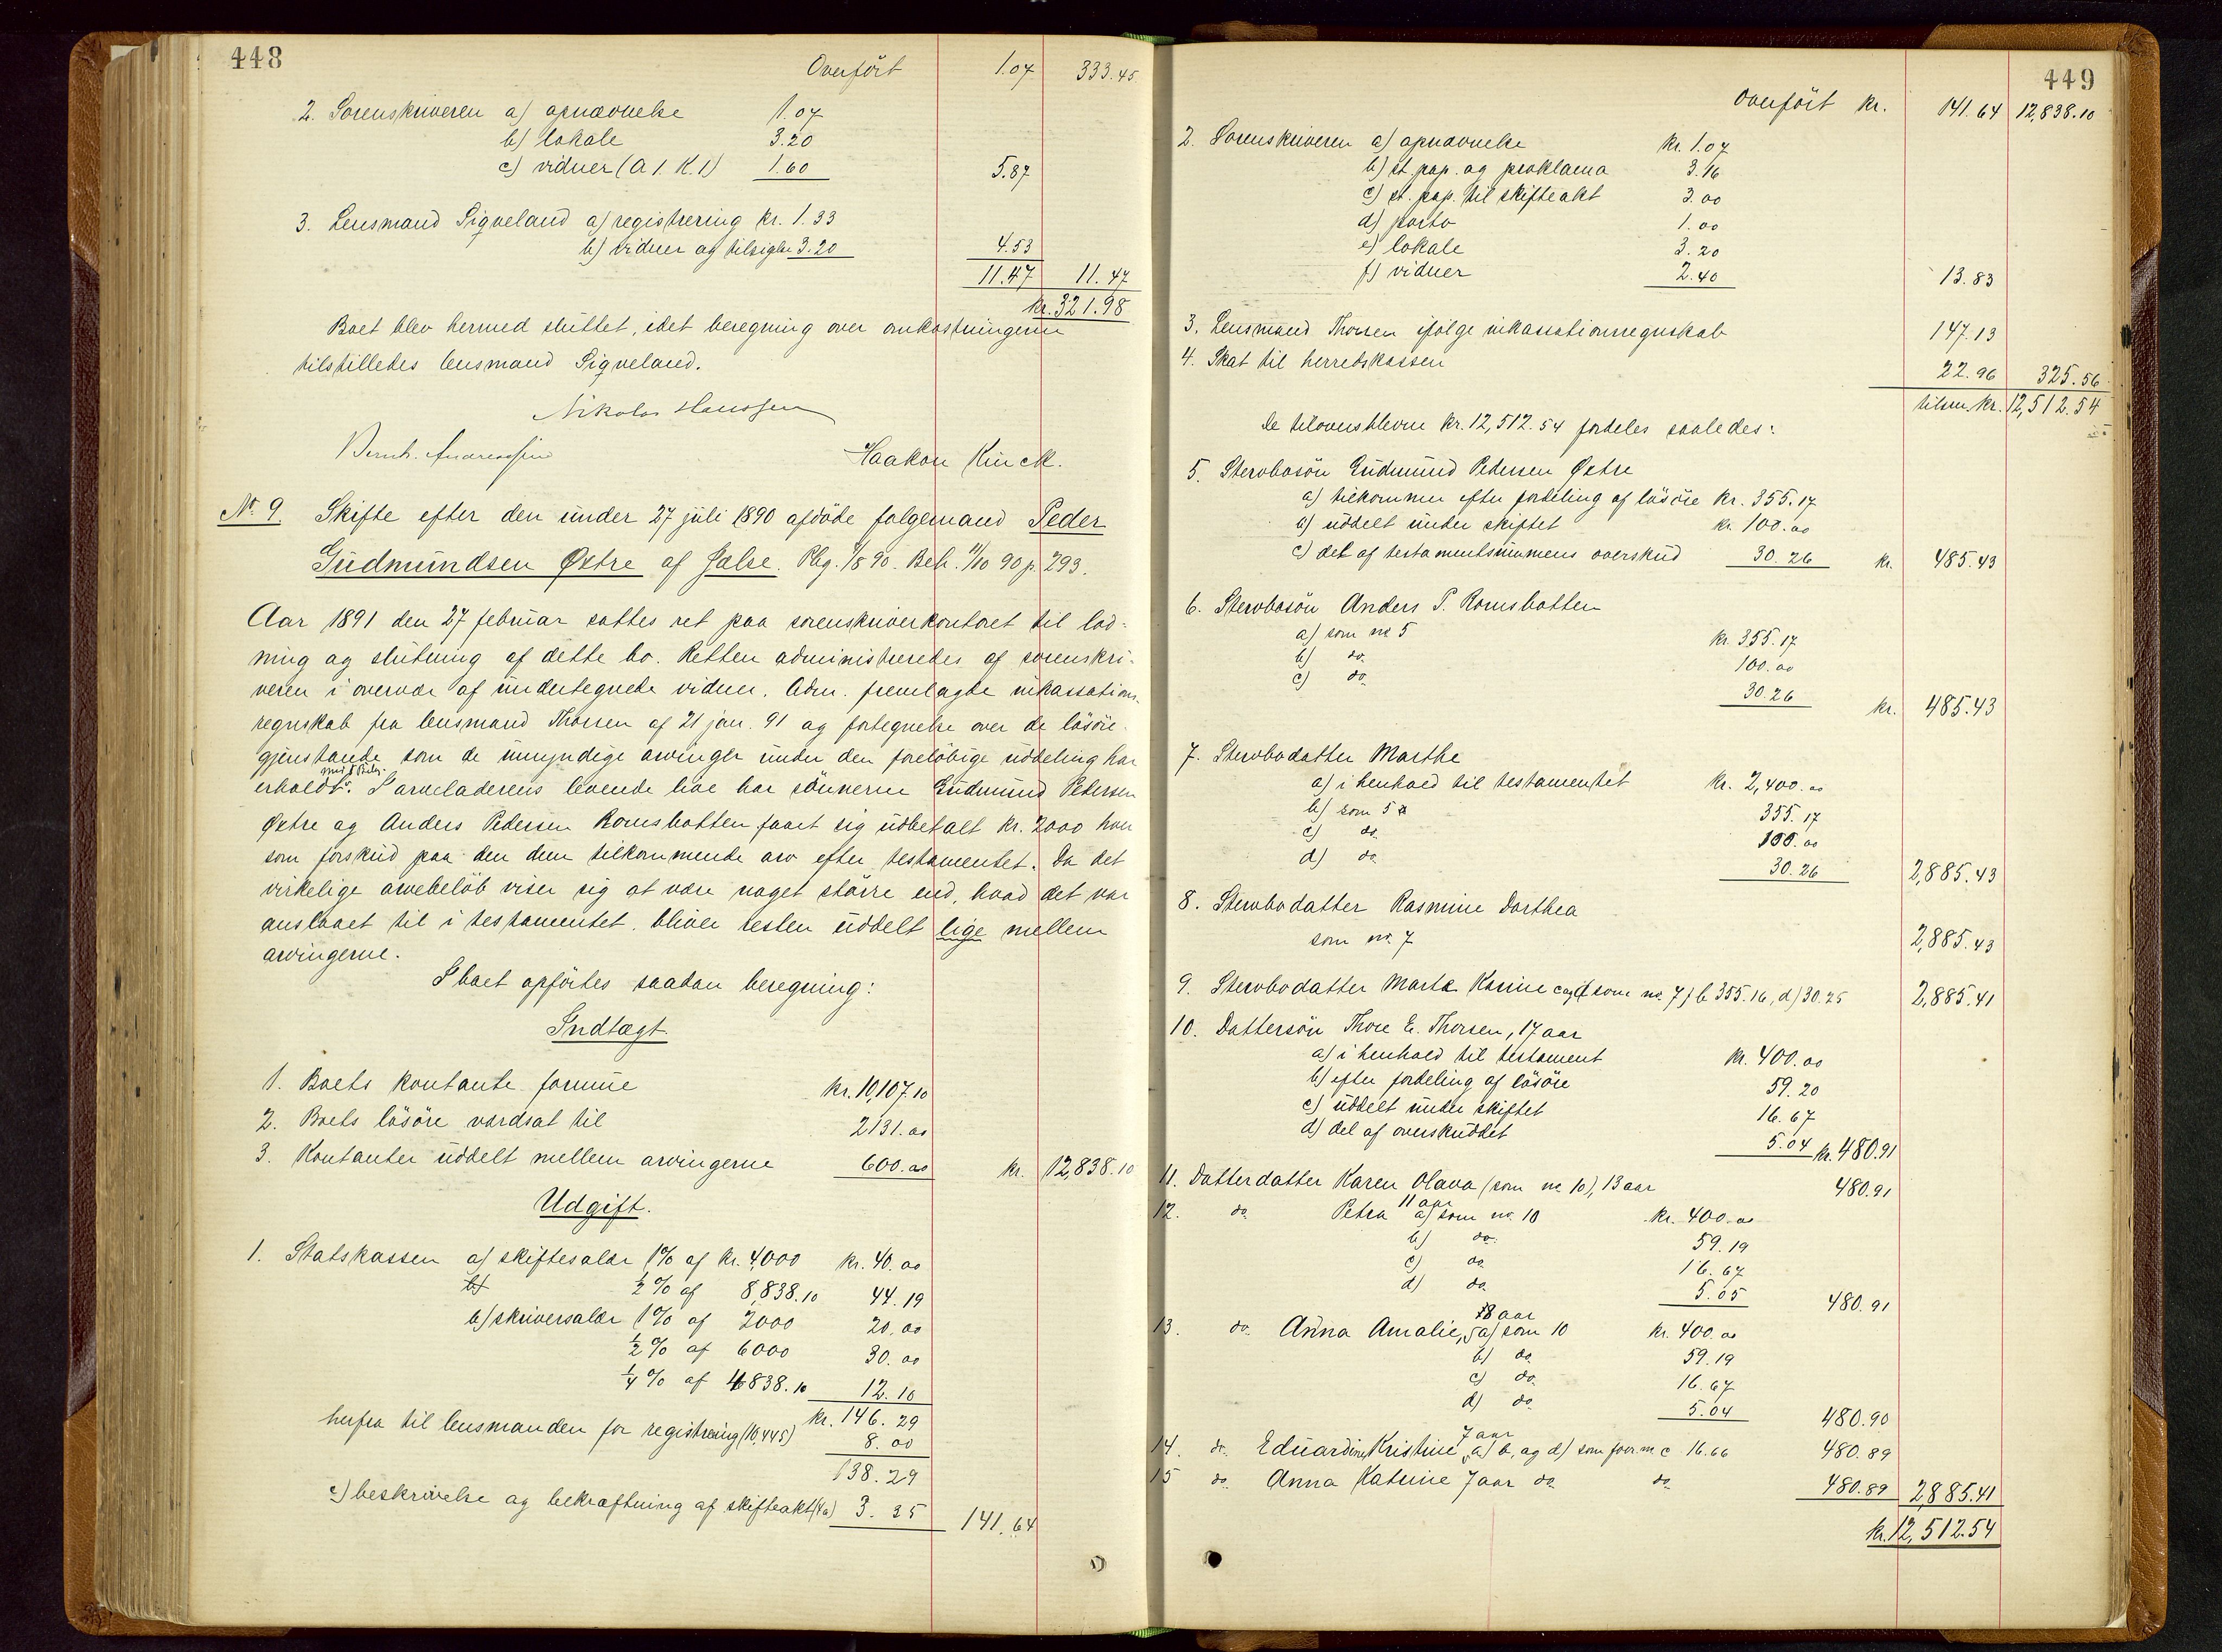 448
Overført 1.07 333.45
2. Sorenskriveren a) opnævnelse 1.07
b) lokale 3.20
c) vidner (A 1. K. 1) 1.60 5.87
3. Lensmand Sigveland a) registrering kr. 1.33
b) vidner og tilsigelse 3.20 4.53
11.47 11.47
kr. 321.98
Boet blev hermed sluttet, idet beregning over omkostningerne
tilstilledes lensmand Sigveland.
Nikolai Hanssen
Bernh. Andreassen Haakon Kinck.
No. 9. Skifte efter den under 27 juli 1890 afdøde folgemand Peder
Gudmundsen Østre af Jælse. Reg. 1/8 90. Beh. 11/10 90 p. 293.
Aar 1891 den 27 februar sattes ret paa sorenskriverkontoret til lod-
ning og slutning af dette bo. Retten administreredes af sorenskri-
veren i overvær af undertegnede vidner. Adm. fremlagde inkassations-
regnskab fra lensmand Thorsen af 21 jan. 91 og fortegnelse over de løsøre-
gjenstande som de umyndige arvinger under den foreløbige uddeling har
erholdt. I arveladerens levende live har sønnerne Gudmund Pedersen
Østre og Anders Pedersen Romsbotten faaet sig udbetalt kr. 2000 hver
som forskud paa den dem tilkommende arv efter testamentet. Da det
virkelige arvebeløb viser sig at være noget større end, hvad det var
anslaaet til i testamentet, bliver resten uddelt lige mellem
arvingerne.
I boet opførtes saadan beregning:
Indtægt.
1. Boets kontante formue kr. 10,107.10
2. Boets løsøre værdsat til 2131.00
3. Kontanter uddelt mellem arvingerne 600.00 kr. 12,838.10
Udgift.
1. Statskassen a) skiftesalær 1% af kr. 4,000 kr. 40.00
b) 1/2 % af 8,838.10 44.19
b) skriversalær 1% af 2000 20.00
1/2 % af 6000 30.00
1/4 % af 4838.10 12.10
kr. 146.29
herfra til lensmanden for registrering (10,445) 8.00
138.29
c) beskrivelse og bekræftning af skifteakt (4a) 3.35 141.64
449
Overført kr. 141.64 12,838.10
2. Sorenskriveren a) opnævnelse kr. 1.07
b) st. pap. og proklama 3.16
c) st. pap. til skifteakt 3.00
d) porto 1.00
e) lokale 3.20
f) vidner 2.40 13.83
3. Lensmand Thorsen ifølge inkassationsregnskab 147.13
4. Skat til herredskassen 22.96 325.56
tilsm. kr. 12,512.54
De tiloversblevne kr. 12,512.54 fordeles saaledes:
5. Stervbosøn Gudmund Pedersen Østre
a) tilkommer efter fordeling af løsøre kr. 355.17
b) uddelt under skiftet kr. 100.00
c) del af testamentsummens overskud 30.26 kr. 485.43
6. Stervbosøn Anders P. Romsbotten
a) som no 5 kr. 355.17
b) do. 100.00
c) do. 30.26 kr. 485.43
7. Stervbodatter Marthe
a) i henhold til testamentet kr. 2,400.00
b) som 5 a 355.17
c) do. 100.00
d) do. 30.26 2,885.43
8. Stervbodatter Rasmine Dorthea
som no. 7 2,885.43
9. Stervbodatter Marta Karine som no. 7, b 355.16, d) 30.25 2,885.41
10. Dattersøn Thore E. Thorsen, 17 aar
a) i henhold til testament kr. 400.00
b) efter fordeling af løsøre 59.20
c) uddelt under skiftet 16.67
d) del af overskuddet 5.04 kr. 480.91
11. Datterdatter Karen Olava (som no 10), 13 aar 480.91
12. do. Petra 11 aar a) som no. 10 kr. 400.00
b) do. 59.19
c) do. 16.67
d) do. 5.05 480.91
13. do. Anna Amalie, 8 aar a) som 10 kr. 400.00
b) do. 59.19
c) do. 16.67
d) do. 5.04 480.90
14. do. Eduardine Kristine, 7 aar a) b, og d) som forr. m. c 16.66 480.89
15 do. Anna Katrine 7 aar do. do. 480.89 2,885.41
kr. 12,512.54